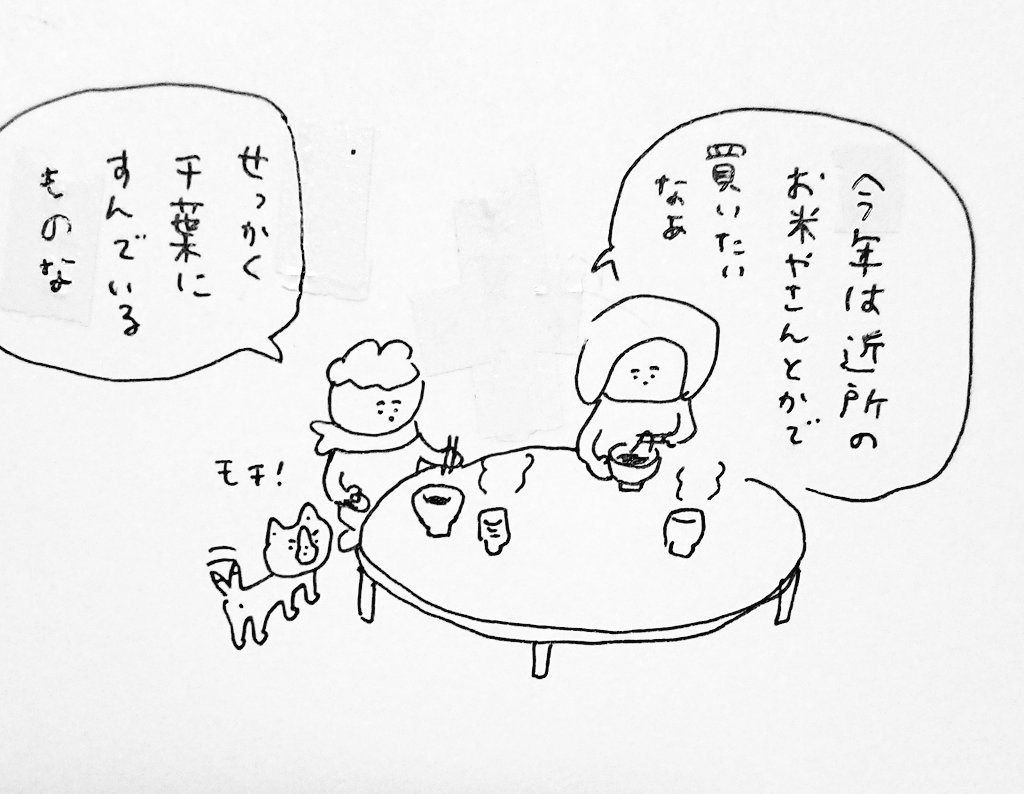 今年は近所の
お米やさんとかで
買いたい
なぁ
せっかく
千葉に
すんでいる
ものな
モチ!